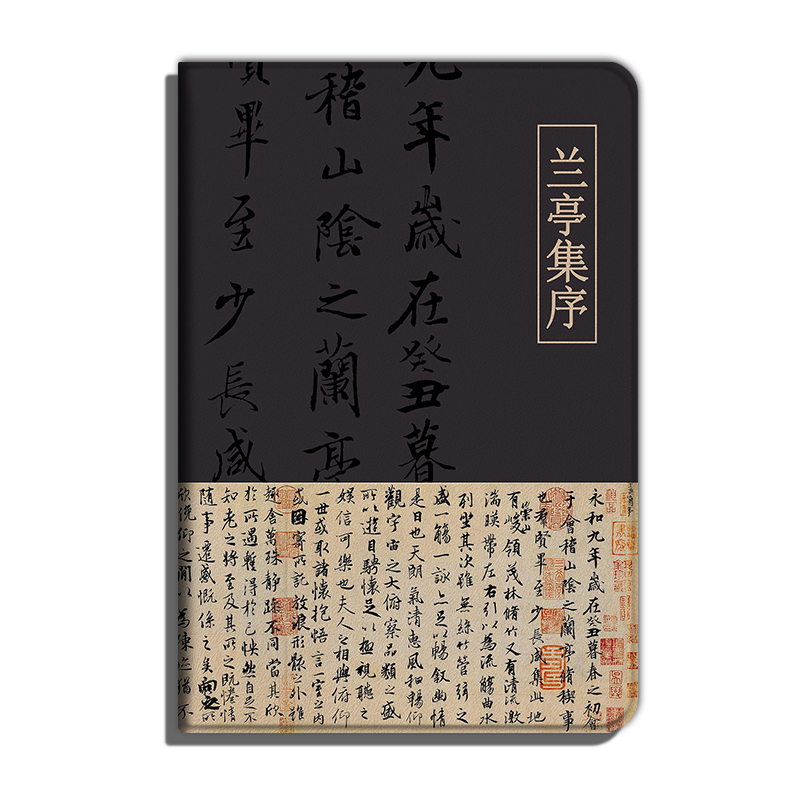 兰亭集序
九年歲在癸丑暮
稽山陰之蘭亭
賢畢至少長咸
永和九年歲在癸丑暮春之初會
于會稽山陰之蘭亭脩稧事
也羣賢畢至少長咸集此地
有崇山峻領茂林脩竹又有清流激
湍暎帶左右引以為流觴曲水
列坐其次雖無絲竹管弦之
盛一觴一詠亦足以暢叙幽情
是日也天朗氣清惠風和暢仰
觀宇宙之大俯察品類之盛
所以遊目騁懷足以極視聽之
娛信可樂也夫人之相與俯仰
一世或取諸懷抱悟言一室之內
或因寄所託放浪形骸之外雖
趣舍萬殊靜躁不同當其欣
於所遇暫得於己怏然自足不
知老之將至及其所之既惓情
隨事遷感慨係之矣向之所
欣俛仰之閒以為陳迹猶不